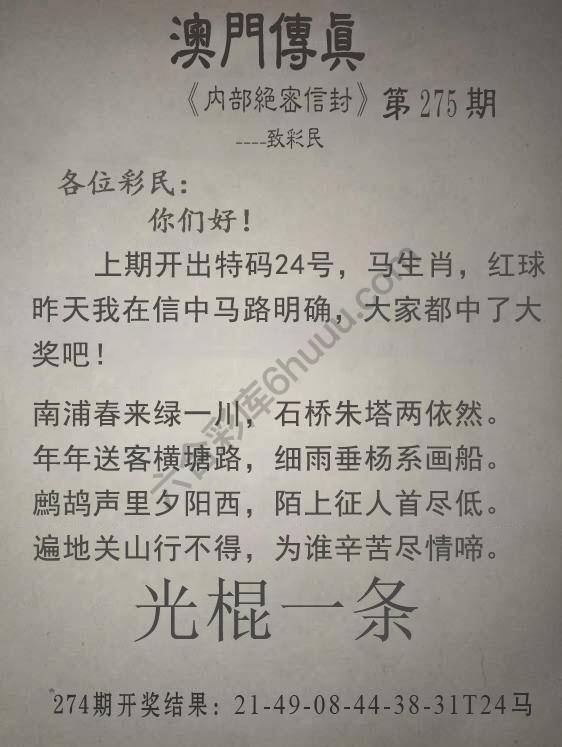 澳門傳真
《内部絕密信封》第275期
----致彩民
各位彩民：
你们好！
上期开出特码24号，马生肖，红球
昨天我在信中马路明确，大家都中了大
奖吧！
南浦春来绿一川，石桥朱塔两依然。
年年送客横塘路，细雨垂杨系画船。
鹧鸪声里夕阳西，陌上征人首尽低。
遍地关山行不得，为谁辛苦尽情啼。
光棍一条
274期开奖结果：21-49-08-44-38-31T24马
六合彩库6huuu.com